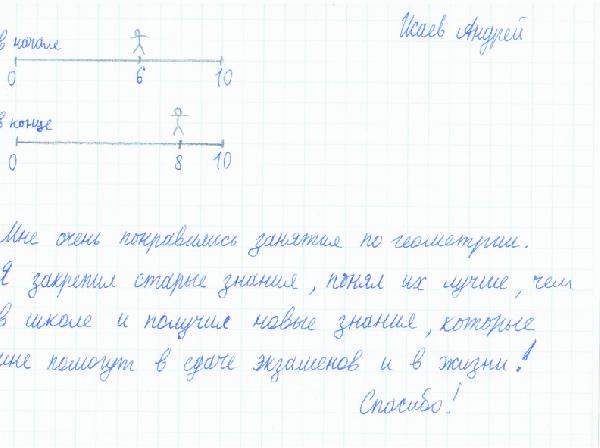 Исаев Андрей
в начале
0 6 10
в конце
0 8 10
Мне очень понравились занятия по геометрии.
Я закрепил старые знания, понял их лучше, чем
в школе и получил новые знания, которые
мне помогут в сдаче экзаменов и в жизни!
Спасибо!